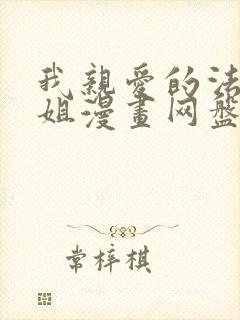 我親愛的法
姐漫畫网盤
常梓棋